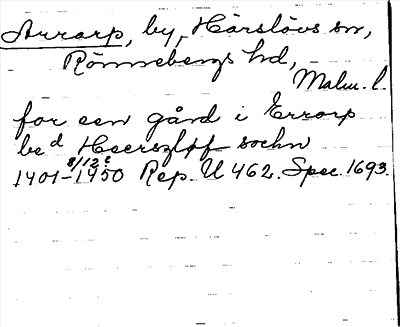 Arrarp, by, Härslövs sn,
Rönnebergs hd,
Malm. l.
for een gård i Errorp
be^d Heerszløff sochn
8/12 ?
1401-1450 Rep. U 462. Spec. 1693.